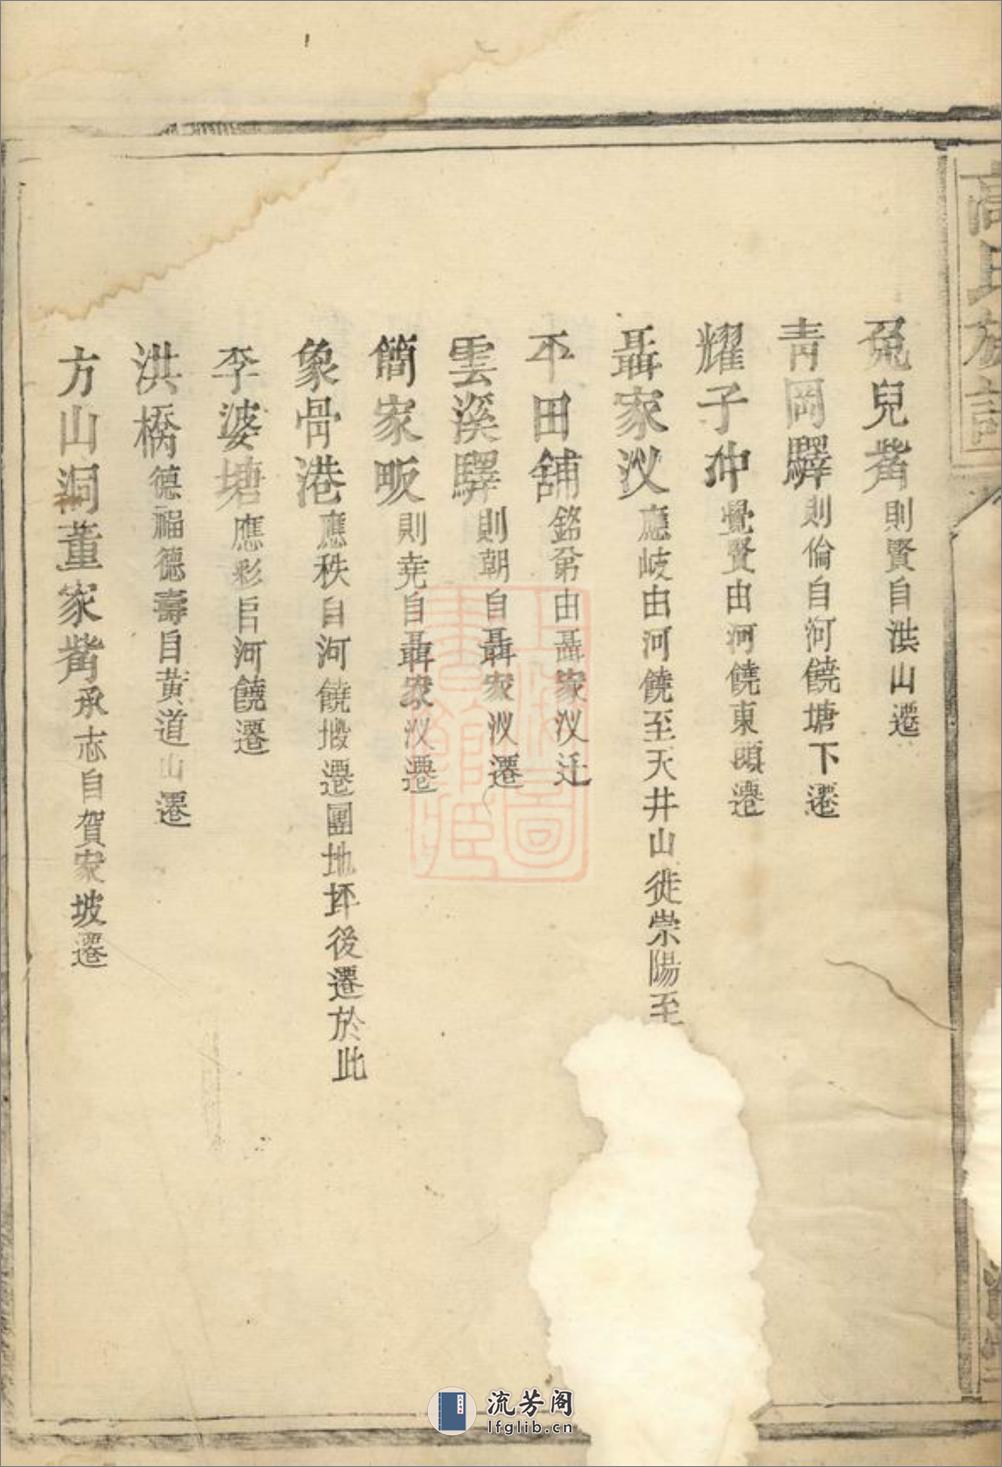 高氏族譜
兔兒觜則賢自洪山遷
青岡驛則倫自河饒塘下遷
耀子冲覺賢由河饒東頭遷
聶家汊應岐由河饒至天井山徙崇陽至
平田舖銘第由聶家汊迁
雲溪驛則朝自聶家汊遷
簡家畈則尭自聶家汊遷
象骨港應秩自河饒塅遷團地坪後遷於此
李婆塘應彩自河饒遷
洪橋德福德壽自黃道山遷
方山洞董家觜承志自賀家坡遷
上海圖書館藏
流芳阁
lfglib.cn